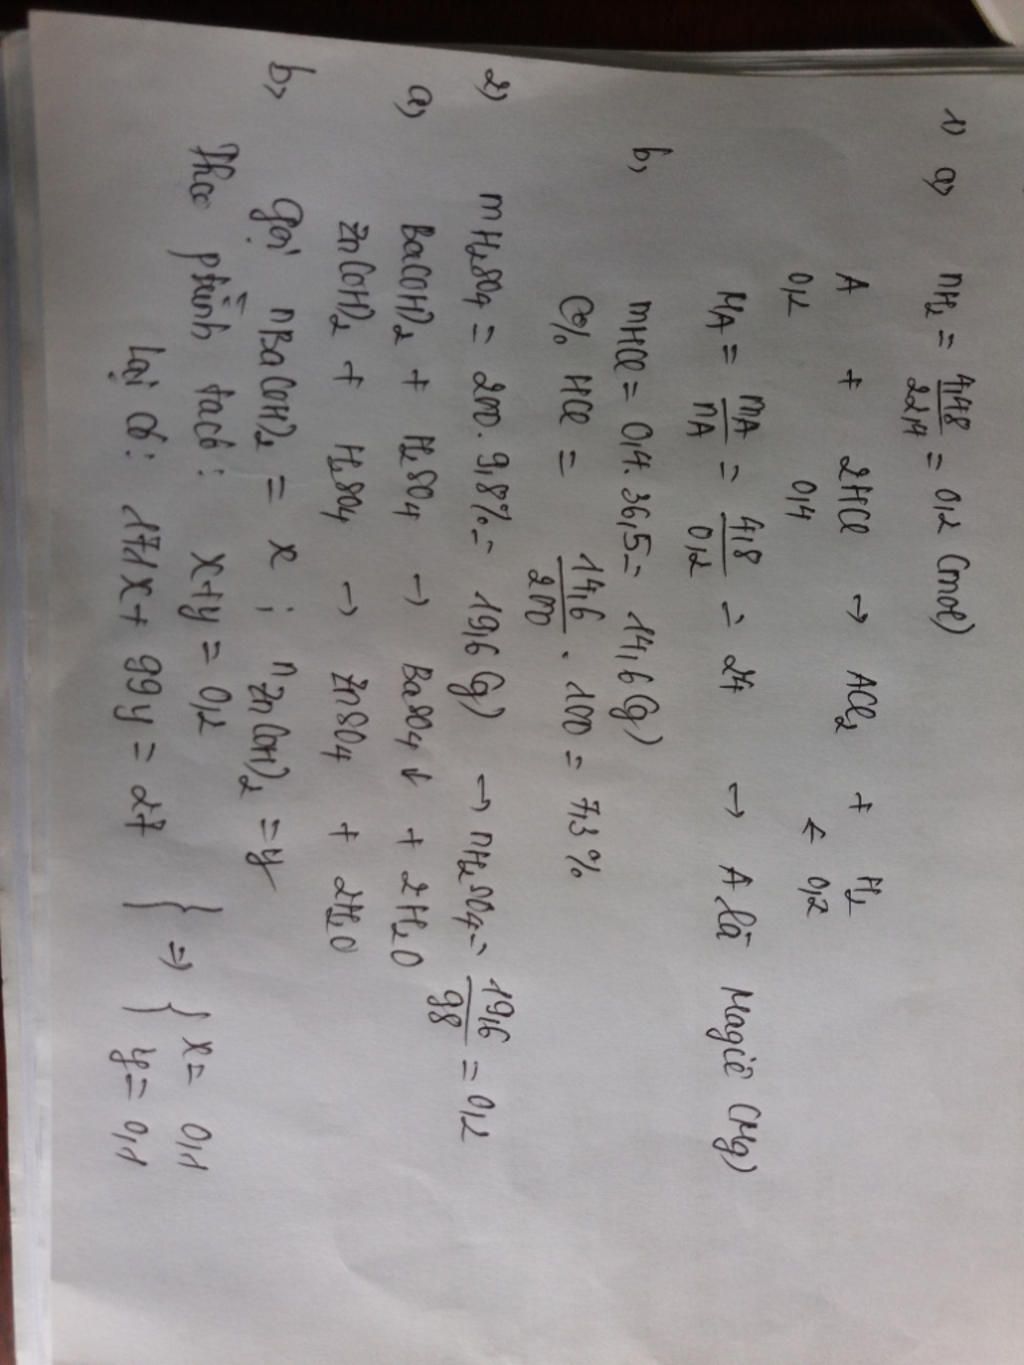 1) a, nH₂ = 4,48/22,4 = 0,2 (mol)
A + 2HCl → ACl₂ + H₂
0,2 0,4 ← 0,2
MA = mA/nA = 4,8/0,2 = 24 → A là Magiê (Mg)
b, mHCl = 0,4. 36,5 = 14,6 (g)
C% HCl = 14,6/200 . 100 = 7,3 %
2) mH₂SO₄ = 200. 9,8% = 19,6 (g) → nH₂SO₄ = 19,6/98 = 0,2
a, Ba(OH)₂ + H₂SO₄ → BaSO₄↓ + 2H₂O
Zn(OH)₂ + H₂SO₄ → ZnSO₄ + 2H₂O
b, Gọi nBa(OH)₂ = x ; nZn(OH)₂ = y
Theo ta có : x+y = 0,2
Lại có: 171x + 99y = 27 } => { x = 0,1
y = 0,1